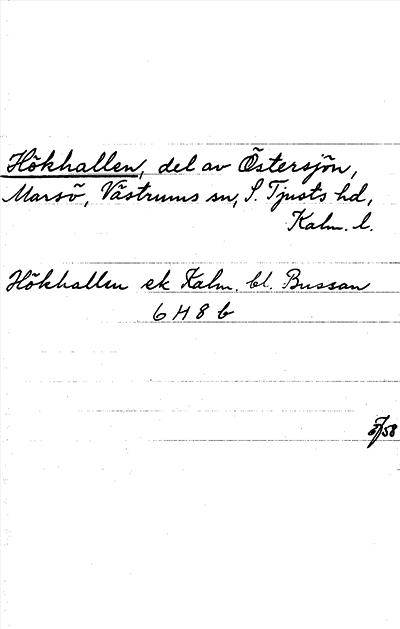 Hökhallen, del av Östersjön,
Marsö, Västrums sn, S. Tjusts hd,
Kalm. l.
Hökhallen ek Kalm. bl. Bussan
6 H 8 b